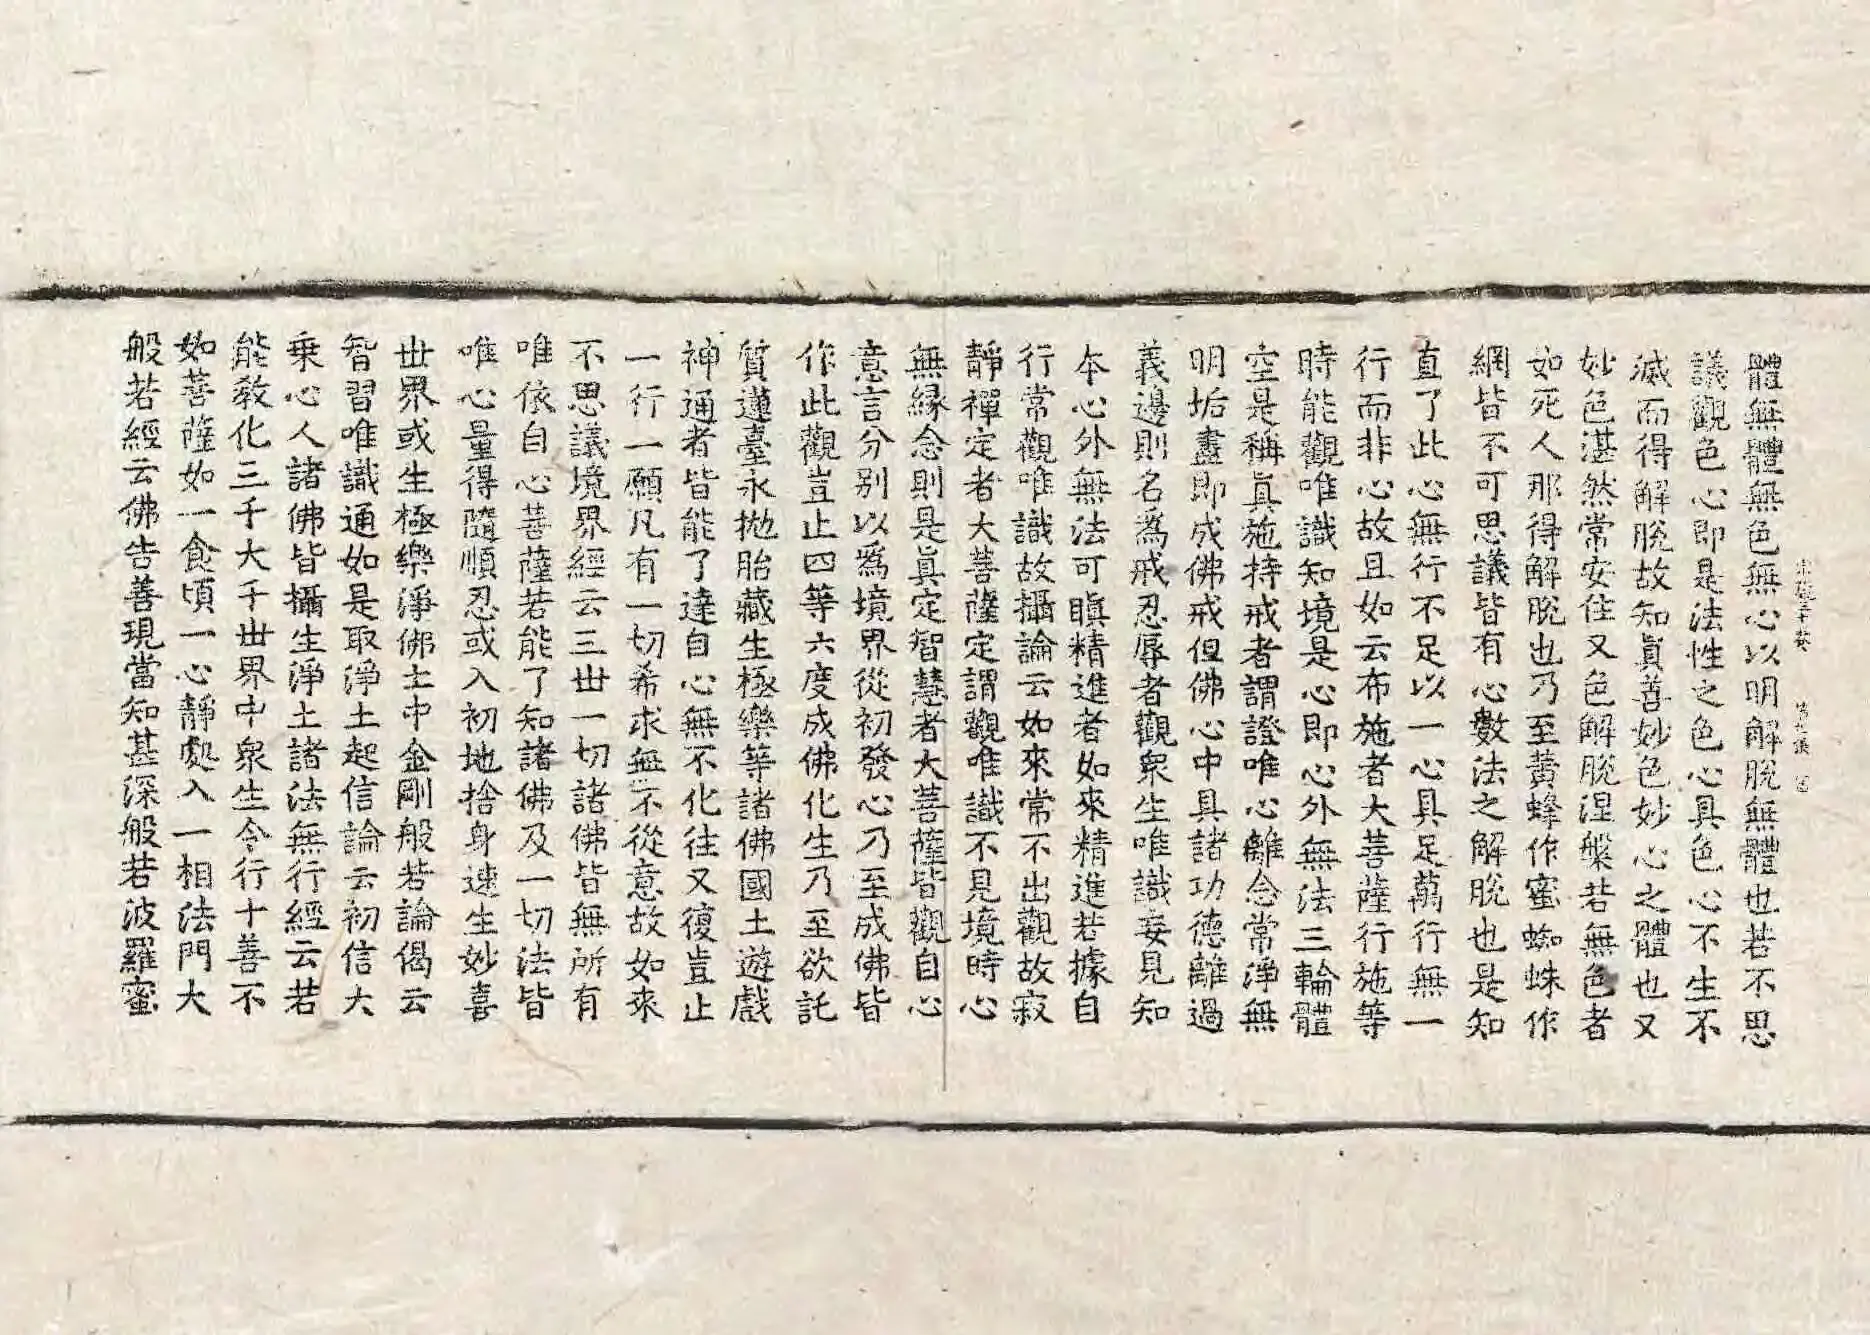 體無體無色無心以明解脫無體也若不思
議觀色心即是法性之色心具色心不生不
滅而得解脫故知眞善妙色妙心之體也又
妙色湛然常安住又色解脫涅槃若無色者
如死人那得解脫也乃至黃蜂作蜜蜘蛛作
網皆不可思議皆有心數法之解脫也是知
直了此心無行不足以一心具足萬行無一
行而非心故且如云布施者大菩薩行施等
時能觀唯識知境是心即心外無法三輪體
空是稱眞施持戒者謂證唯心離念常淨無
明垢盡即成佛戒但佛心中具諸功德離過
義邊則名爲戒忍辱者觀衆生唯識妄見知
本心外無法可瞋精進者如來精進若據自
行常觀唯識故攝論云如來常不出觀故寂
靜禪定者大菩薩定謂觀唯識不見境時心
無緣念則是眞定智慧者大菩薩皆觀自心
意言分別以爲境界從初發心乃至成佛皆
作此觀豈止四等六度成佛化生乃至欲託
質蓮臺永拋胎藏生極樂等諸佛國土遊戲
神通者皆能了達自心無不化往又復豈止
一行一願凡有一切希求無不從意故如來
不思議境界經云三世一切諸佛皆無所有
唯依自心菩薩若能了知諸佛及一切法皆
唯心量得隨順忍或入初地捨身速生妙喜
世界或生極樂淨佛土中金剛般若論偈云
智習唯識通如是取淨土起信論云初信大
乘心人諸佛皆攝生淨土諸法無行經云若
能敎化三千大千世界中衆生令行十善不
如菩薩如一食頃一心靜處入一相法門大
般若經云佛告善現當知甚深般若波羅蜜